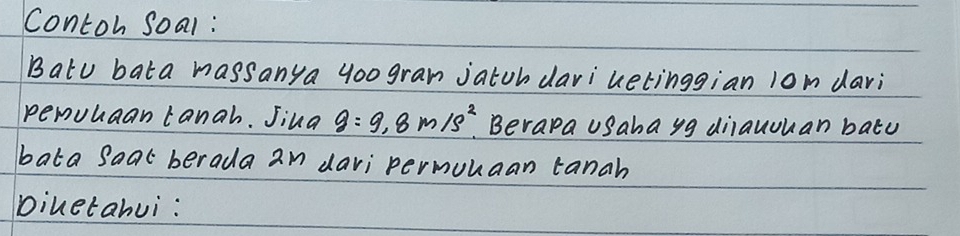 Contoh Soal :
Batu bata massanya 400 gram jatuh dari ketinggian 10 m dari
pemukaan tanah. Jika g = 9,8 m/s². Berapa usaha yg dilakukan batu
bata saat berada 2m dari permukaan tanah
Diketahui :